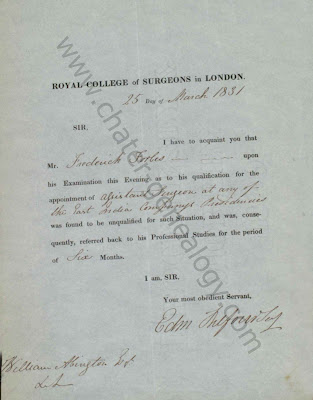 ROYAL COLLEGE of SURGEONS in LONDON.
25 Day of March 1831
SIR.
I have to acquaint you that
Mr. Frederick Forbes upon
his Examination this Evening as to his qualification for the
appointment of assistant Surgeon at any of
the East India Company's Presidencies
was found to be unqualified for such Situation, and was, conse-
quently, referred back to his Professional Studies for the period
of Six Months.
I am. SIR.
Your most obedient Servant,
Edm Belfour Secy
William Abington Esqr
www.chatergenealogy.com